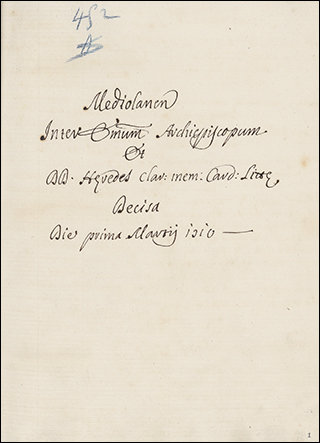 452
A
Mediolanen
Inter Emum Archiepiscopum
Et
DD. Hęredes clar: mem: Card: Littę
Decisa
Die prima Martij
1